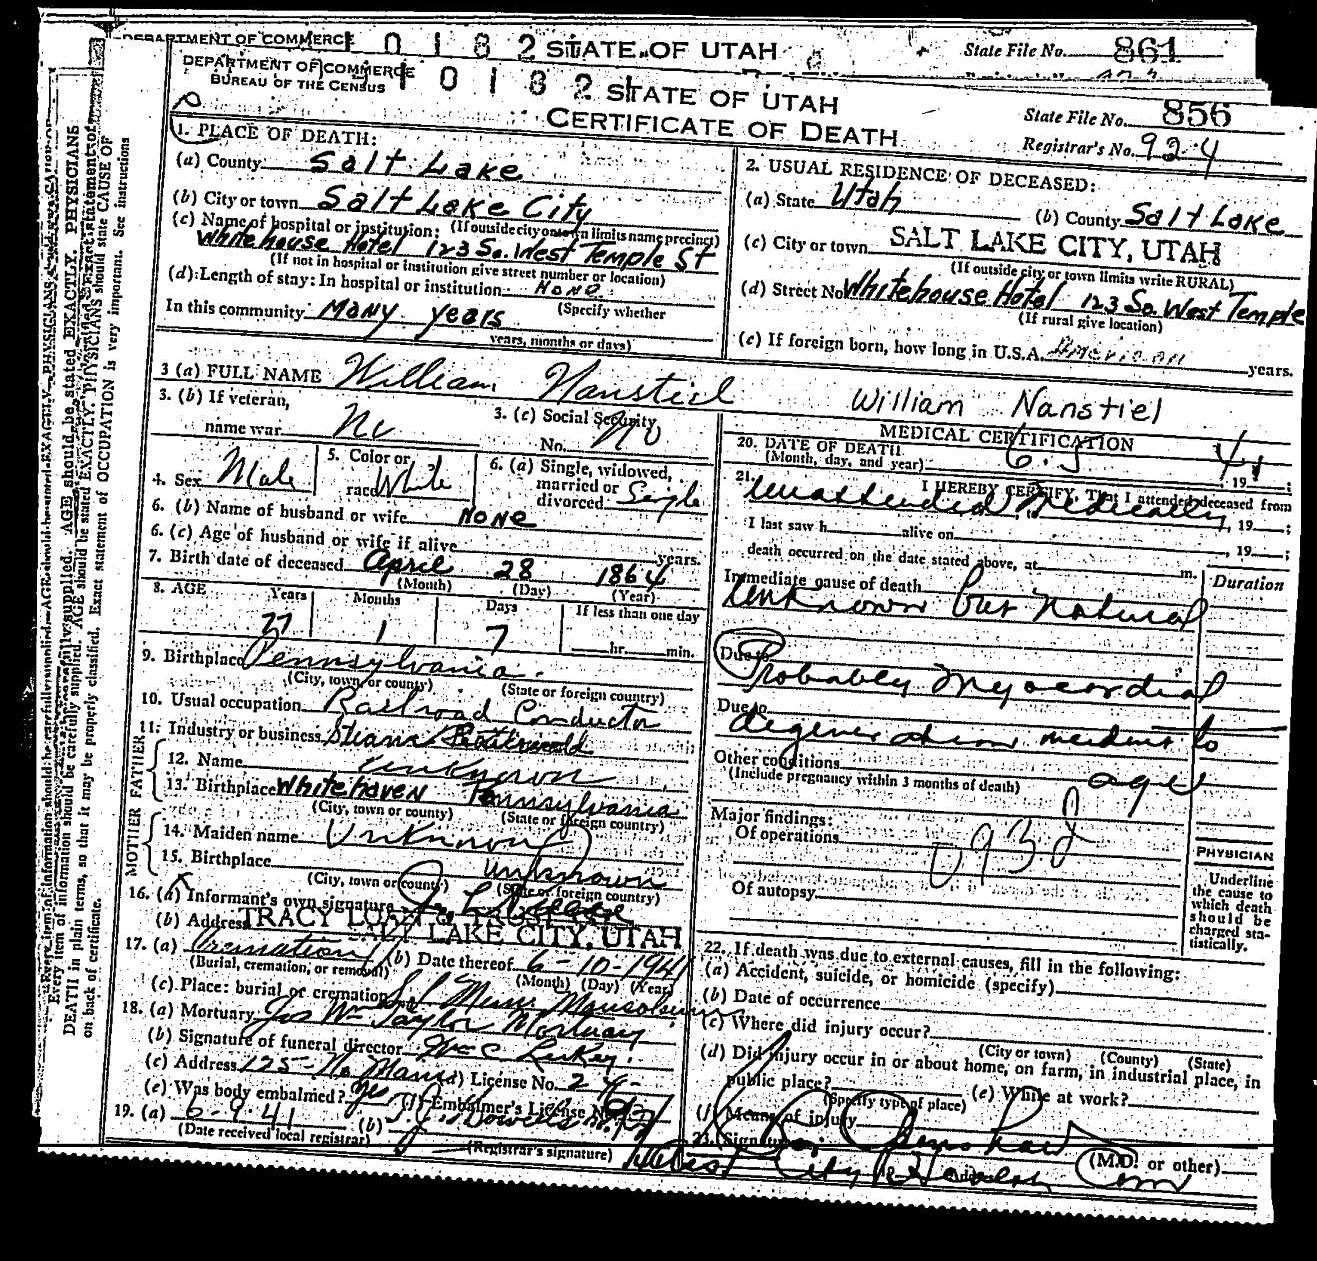 DEPARTMENT OF COMMERCE 1 0 1 8 2 STATE OF UTAH State File No. 861
DEPARTMENT OF COMMERCE 1 0 1 8 2 STATE OF UTAH State File No. 856
BUREAU OF THE CENSUS
CERTIFICATE OF DEATH Registrar's No. 924
1. PLACE OF DEATH:
(a) County Salt Lake
(b) City or town Salt Lake City
(If outside city or town limits name precinct)
(c) Name of hospital or institution:
Whitehouse Hotel 123 So. West Temple St
(If not in hospital or institution give street number or location)
(d) Length of stay: In hospital or institution None
(Specify whether
In this community Many years
years, months or days)
2. USUAL RESIDENCE OF DECEASED:
(a) State Utah (b) County Salt Lake
(c) City or town SALT LAKE CITY, UTAH
(If outside city or town limits write RURAL)
(d) Street No. Whitehouse Hotel 123 So. West Temple
(If rural give location)
(e) If foreign born, how long in U.S.A. American years.
3 (a) FULL NAME William Nanstiel William Nanstiel
3. (b) If veteran, name war No
3. (c) Social Security No. No
4. Sex Male
5. Color or race White
6. (a) Single, widowed, married or divorced Single
6. (b) Name of husband or wife None
6. (c) Age of husband or wife if alive years.
7. Birth date of deceased April 28 1864
(Month) (Day) (Year)
8. AGE Years Months Days If less than one day
77 1 7 hr. min.
9. Birthplace Pennsylvania
(City, town, or county) (State or foreign country)
10. Usual occupation Railroad Conductor
11. Industry or business Steam Railroad
FATHER
12. Name Unknown
13. Birthplace Whitehaven Pennsylvania
(City, town or county) (State or foreign country)
MOTHER
14. Maiden name Unknown
15. Birthplace Unknown
(City, town or county) (State or foreign country)
16. (a) Informant's own signature
(b) Address TRACY LOAN & TRUST
SALT LAKE CITY, UTAH
17. (a) Cremation (b) Date thereof 6-10-1941
(Burial, cremation, or removal) (Month) (Day) (Year)
(c) Place: burial or cremation S L Mem. Mausoleum
18. (a) Mortuary Jos Wm Taylor Mortuary
(b) Signature of funeral director
(c) Address 125 No Main (d) License No. 24
(e) Was body embalmed? yes (f) Embalmer's License No.
19. (a) 6-9-41 (b)
(Date received local registrar) (Registrar's signature)
MEDICAL CERTIFICATION
20. DATE OF DEATH
(Month, day, and year) 6-5 1941;
21. I HEREBY CERTIFY, That I attended deceased from
Unattended Medically, 19 ;
I last saw h alive on , 19 ;
death occurred on the date stated above, at m.
Immediate cause of death Duration
Unknown but natural
Due to
Probably Myocardial
Due to
degeneration incident to
Other conditions age
(Include pregnancy within 3 months of death)
Major findings:
Of operations
93d
Of autopsy
PHYSICIAN
Underline
the cause to
which death
should be
charged sta-
tistically.
22. If death was due to external causes, fill in the following:
(a) Accident, suicide, or homicide (specify)
(b) Date of occurrence
(c) Where did injury occur?
(City or town) (County) (State)
(d) Did injury occur in or about home, on farm, in industrial place, in
public place? (e) While at work?
(Specify type of place)
(f) Means of injury
23. Signature (M.D. or other)
City Health Com
Every item of information should be carefully supplied. AGE should be stated EXACTLY. PHYSICIANS should state CAUSE OF
DEATH in plain terms, so that it may be properly classified. Exact statement of OCCUPATION is very important. See instructions
on back of certificate.